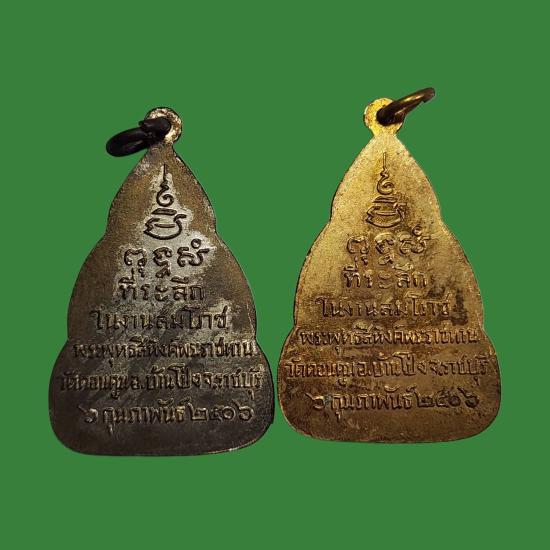 ที่ระลึก
ในงานสมโภช
พระพุทธสิหิงค์พระราชทาน
วัดดอนตูม อ.บ้านโป่ง จ.ราชบุรี
๖ กุมภาพันธ์ ๒๕๑๖
ที่ระลึก
ในงานสมโภช
พระพุทธสิหิงค์พระราชทาน
วัดดอนตูม อ.บ้านโป่ง จ.ราชบุรี
๖ กุมภาพันธ์ ๒๕๑๖